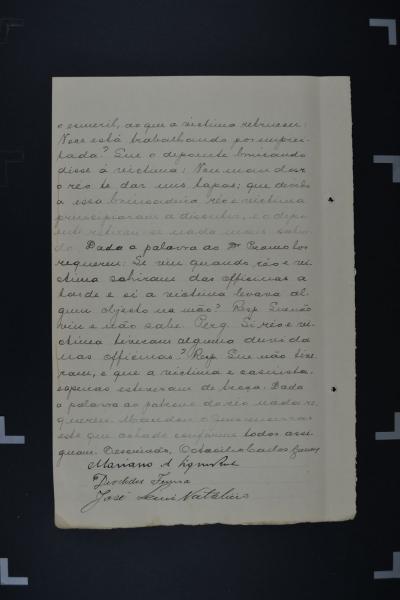 o esmeril, ao que a victima retrucou:
Voce está trabalhando por emprei-
tada? Que o depoente brincando
disse á victima: Vou mandar
o réo te dar uns tapas; que devido
a essa brincadeira réo e victima
principiaram a discutir, e o depo
ente retirou-se nada mais saben
do. Dada a palavra ao Dr Promotor
requereu: Si viu quando réo e vi-
ctima sahiram das officinas a
tarde e si a victima levava al
gum objecto na mão? Resp. Que não
viu e não sabe. Perg. Si réo e vi-
ctima tiveram alguma duvida
nas officinas? Resp. Que não tive
ram, e que a victima e
apenas estiveram de troça. Dada
a palavra ao patrono do réo nada re
quereu. Mandou o
este que achado conforme todos assi
gnam. Eu escrivão, Octacilio Carlos
Mariano A
Diochdes
José Luis Natalino